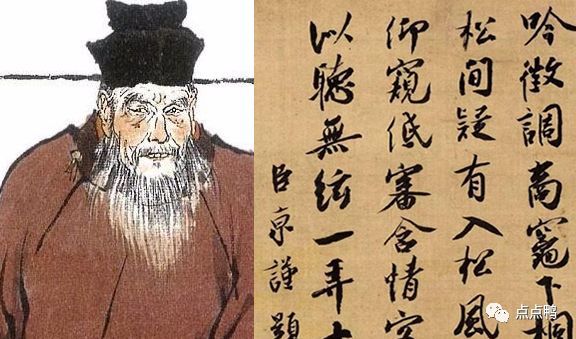 吟徵調商竈下桐
松間疑有入松風
仰窺低審含情客
似聽無絃一弄
臣京謹題
点点鸭